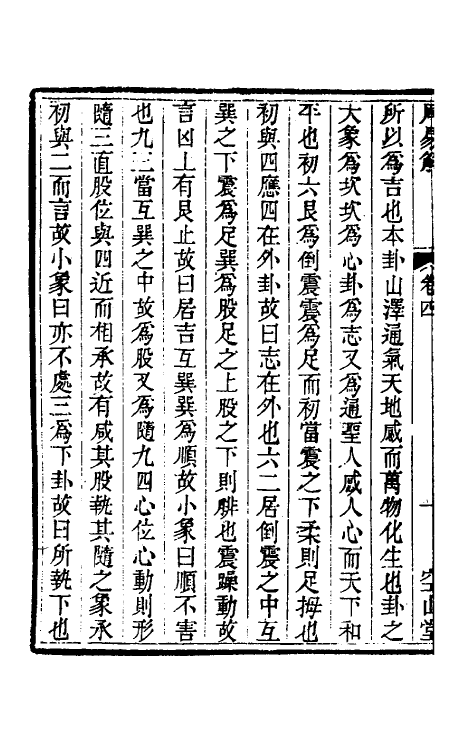 周易解 卷四 一 空山堂
所以爲吉也本卦山澤通氣天地感而萬物化生也卦之
大象爲坎坎爲心卦爲志又爲通聖人感人心而天下和
平也初六艮爲倒震震爲足而初當震之下柔則足拇也
初與四應四在外卦故曰志在外也六二居倒震之中互
巽之下震爲足巽爲股足之上股之下則腓也震躁動故
言凶上有艮止故曰居吉互巽巽爲順故小象曰順不害
也九三當互巽之中故爲股又爲隨九四心位心動則形
隨三直股位與四近而相承故有咸其股執其隨之象承
初與二而言故小象曰亦不處三爲下卦故曰所執下也